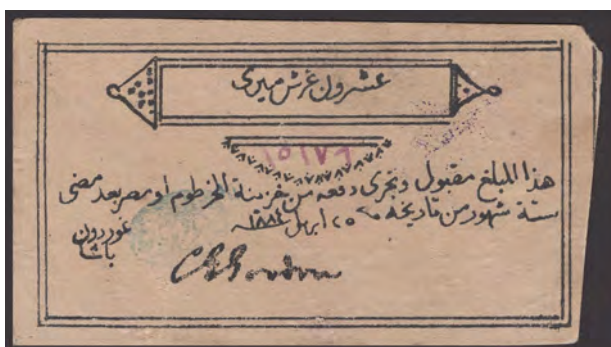 عشرون غرش ميرى
١٥١٧٦
هذا المبلغ مقبول وتجرى دفعه من خزينة الخرطوم او مصر بعد مضى
ستة شهور من تاريخه ٢٥ ابريل ١٨٨٤
غوردون
باشا
C G Gordon